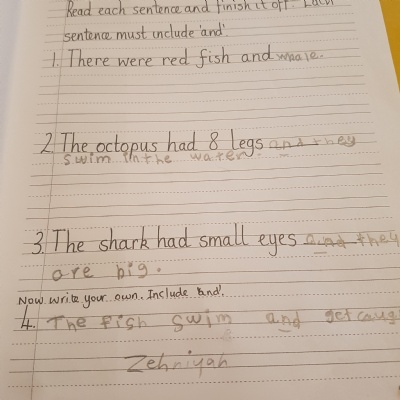 Read each sentence and finish it off. Each
sentence must include 'and'.
1. There were red fish and whale.
2. The octopus had 8 legs and they
swim in the water.
3. The shark had small eyes and they
are big.
Now write your own. Include 'and'.
4. The fish swim and get caug
Zehriyah